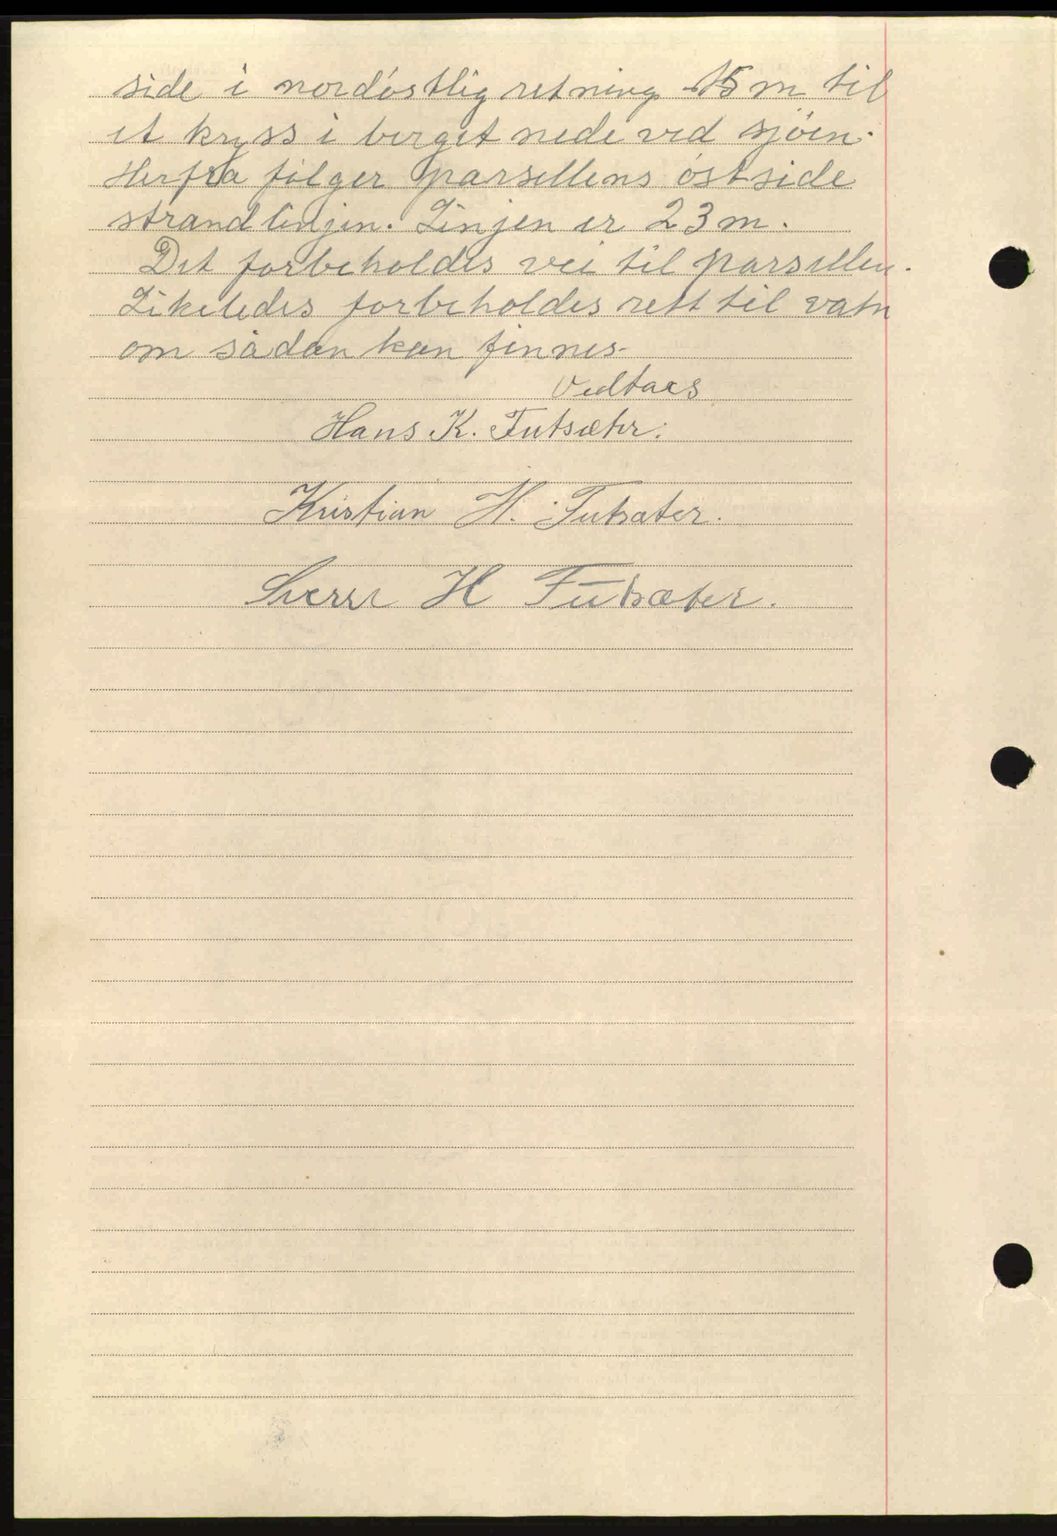 side i nordøstlig retning 15 m til
et kryss i berget nede ved sjøen.
Herfra følger parsellens østside
strandlinjen. Linjen er 23 m.
Det forbeholdes vei til parsellen.
Likeledes forbeholdes rett til vatn
om sådan kan finnes.
Vedtaes
Hans K. Futsæter.
Kristian H. Futsæter.
Sverre H Futsæter.